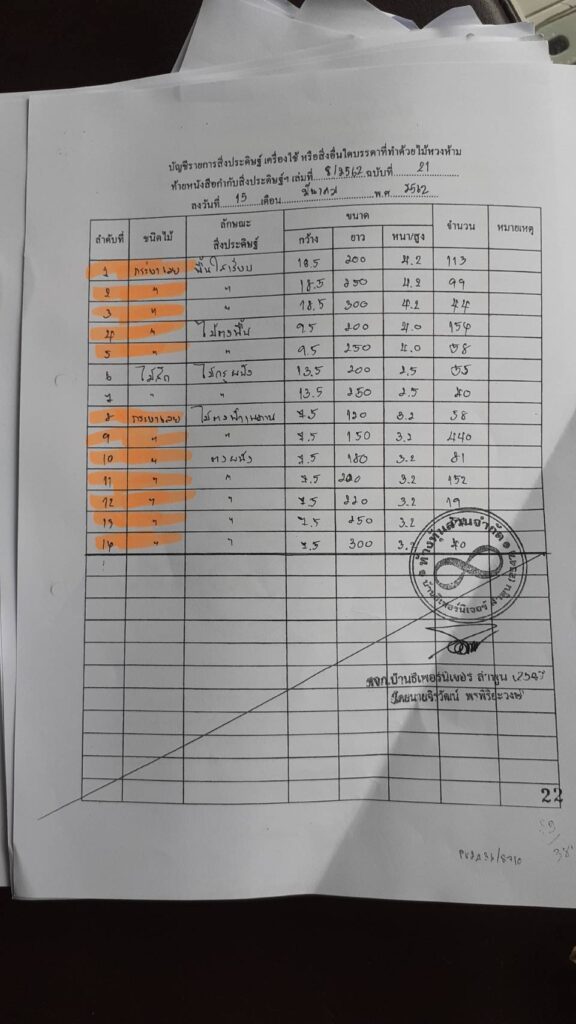 บัญชีรายการสิ่งประดิษฐ์ เครื่องใช้ หรือสิ่งอื่นใดบรรดาที่ทำด้วยไม้หวงห้าม
ท้ายหนังสือกำกับสิ่งประดิษฐ์ฯ เล่มที่ 8/2562 ฉบับที่ 21
ลงวันที่ 15 เดือน มีนาคม พ.ศ. 2562
ลำดับที่ ชนิดไม้ ลักษณะสิ่งประดิษฐ์ ขนาด จำนวน หมายเหตุ
กว้าง ยาว หนา/สูง
1 กระยาเลย พื้นใสเรียบ 18.5 200 4.2 113
2 " " 18.5 250 4.2 99
3 " " 18.5 300 4.2 44
4 " ไม้ตงพื้น 9.5 200 4.0 154
5 " " 9.5 250 4.0 58
6 ไม้สัก ไม้กรุผนัง 13.5 200 2.5 55
7 " " 13.5 250 2.5 40
8 กระยาเลย ไม้ตงฝ้าเพดาน 7.5 120 3.2 58
9 " " 7.5 150 3.2 440
10 " ตงผนัง 7.5 180 3.2 81
11 " " 7.5 200 3.2 152
12 " " 7.5 220 3.2 19
13 " " 7.5 250 3.2
14 " " 7.5 300 3.2 40
ห้างหุ้นส่วนจำกัด
บ้านธีเฟอร์นิเจอร์ ลำพูน (2547)
หจก.บ้านธีเฟอร์นิเจอร์ ลำพูน 2547
โดยนายจิรวัฒน์
22